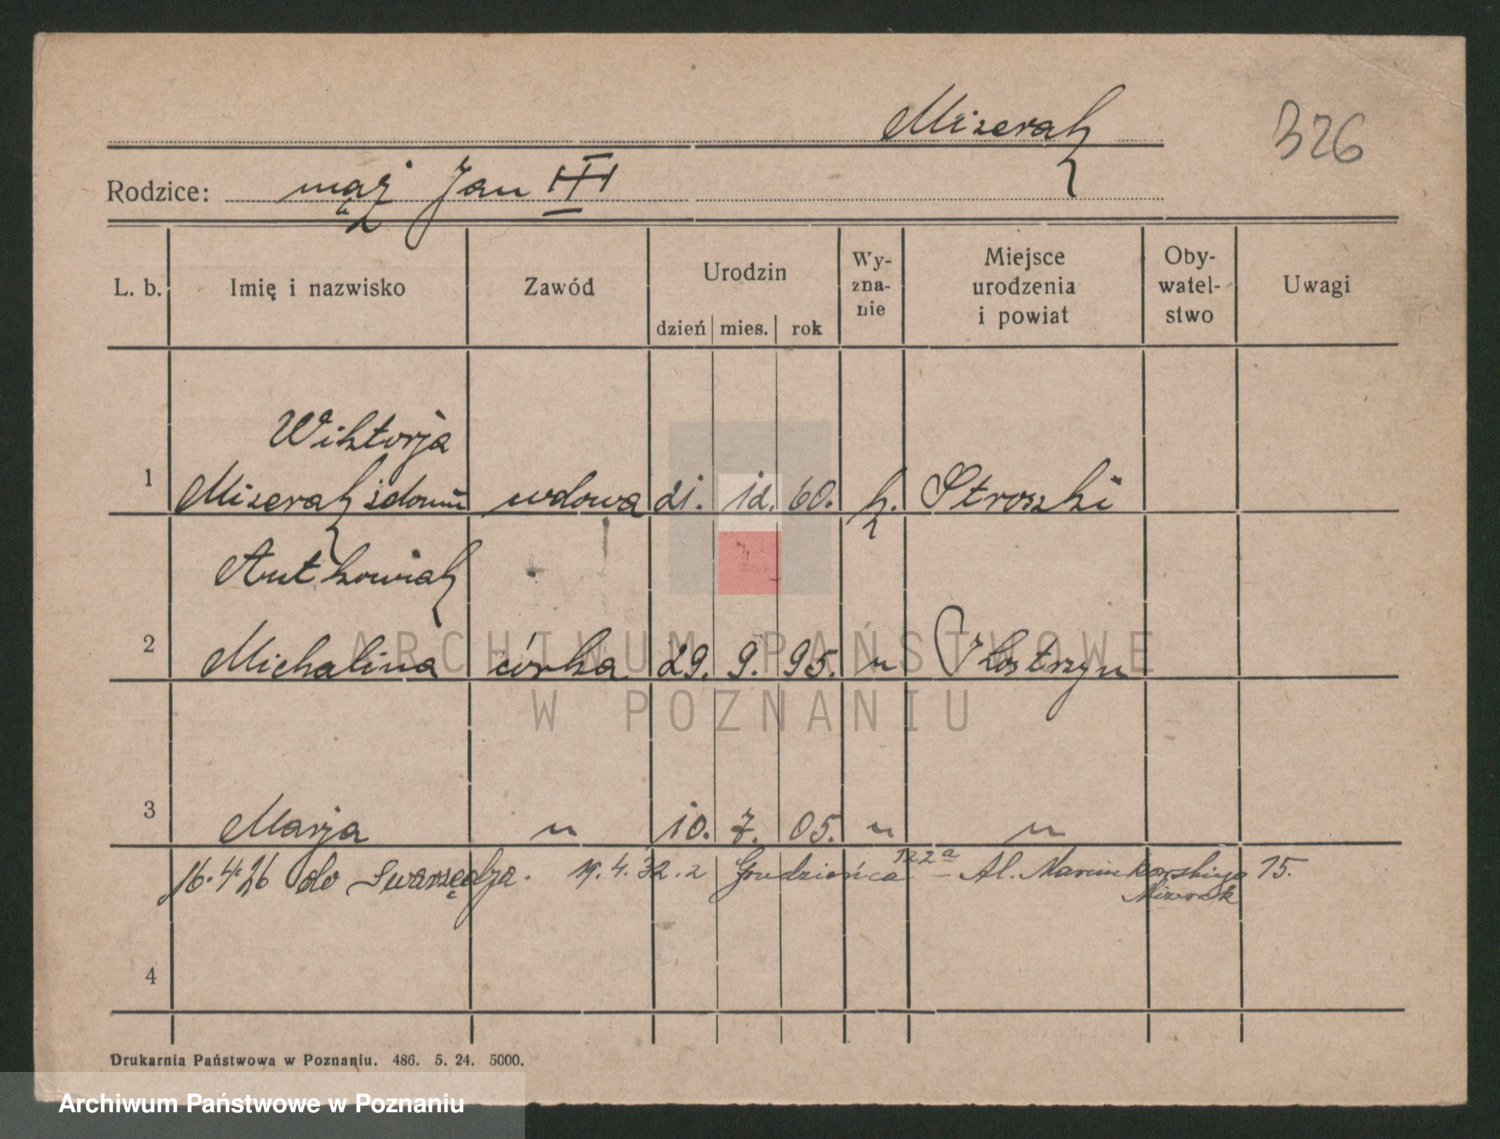 Mizerak
326
Rodzice: mąż Jan III
L. b. Imię i nazwisko Zawód Urodzin dzień mies. rok Wy-zna-nie Miejsce urodzenia i powiat Oby-watel-stwo Uwagi
Wiktorja
1 Mizerak zdomu wdowa 21. 12. 60. k. Stroszki
Antkowiak
2 Michalina córka 29. 9. 95. " Kostrzyn
3 Marja " 10. 7. 05. " "
16.4.26 do Swarzędza. 19.4.32. z Grudzieńca 122a - Al. Marcinkowskiego 15.
Mizerak
4
ARCHIWUM PAŃSTWOWE
W POZNANIU
Drukarnia Państwowa w Poznaniu. 486. 5. 24. 5000.
Archiwum Państwowe w Poznaniu